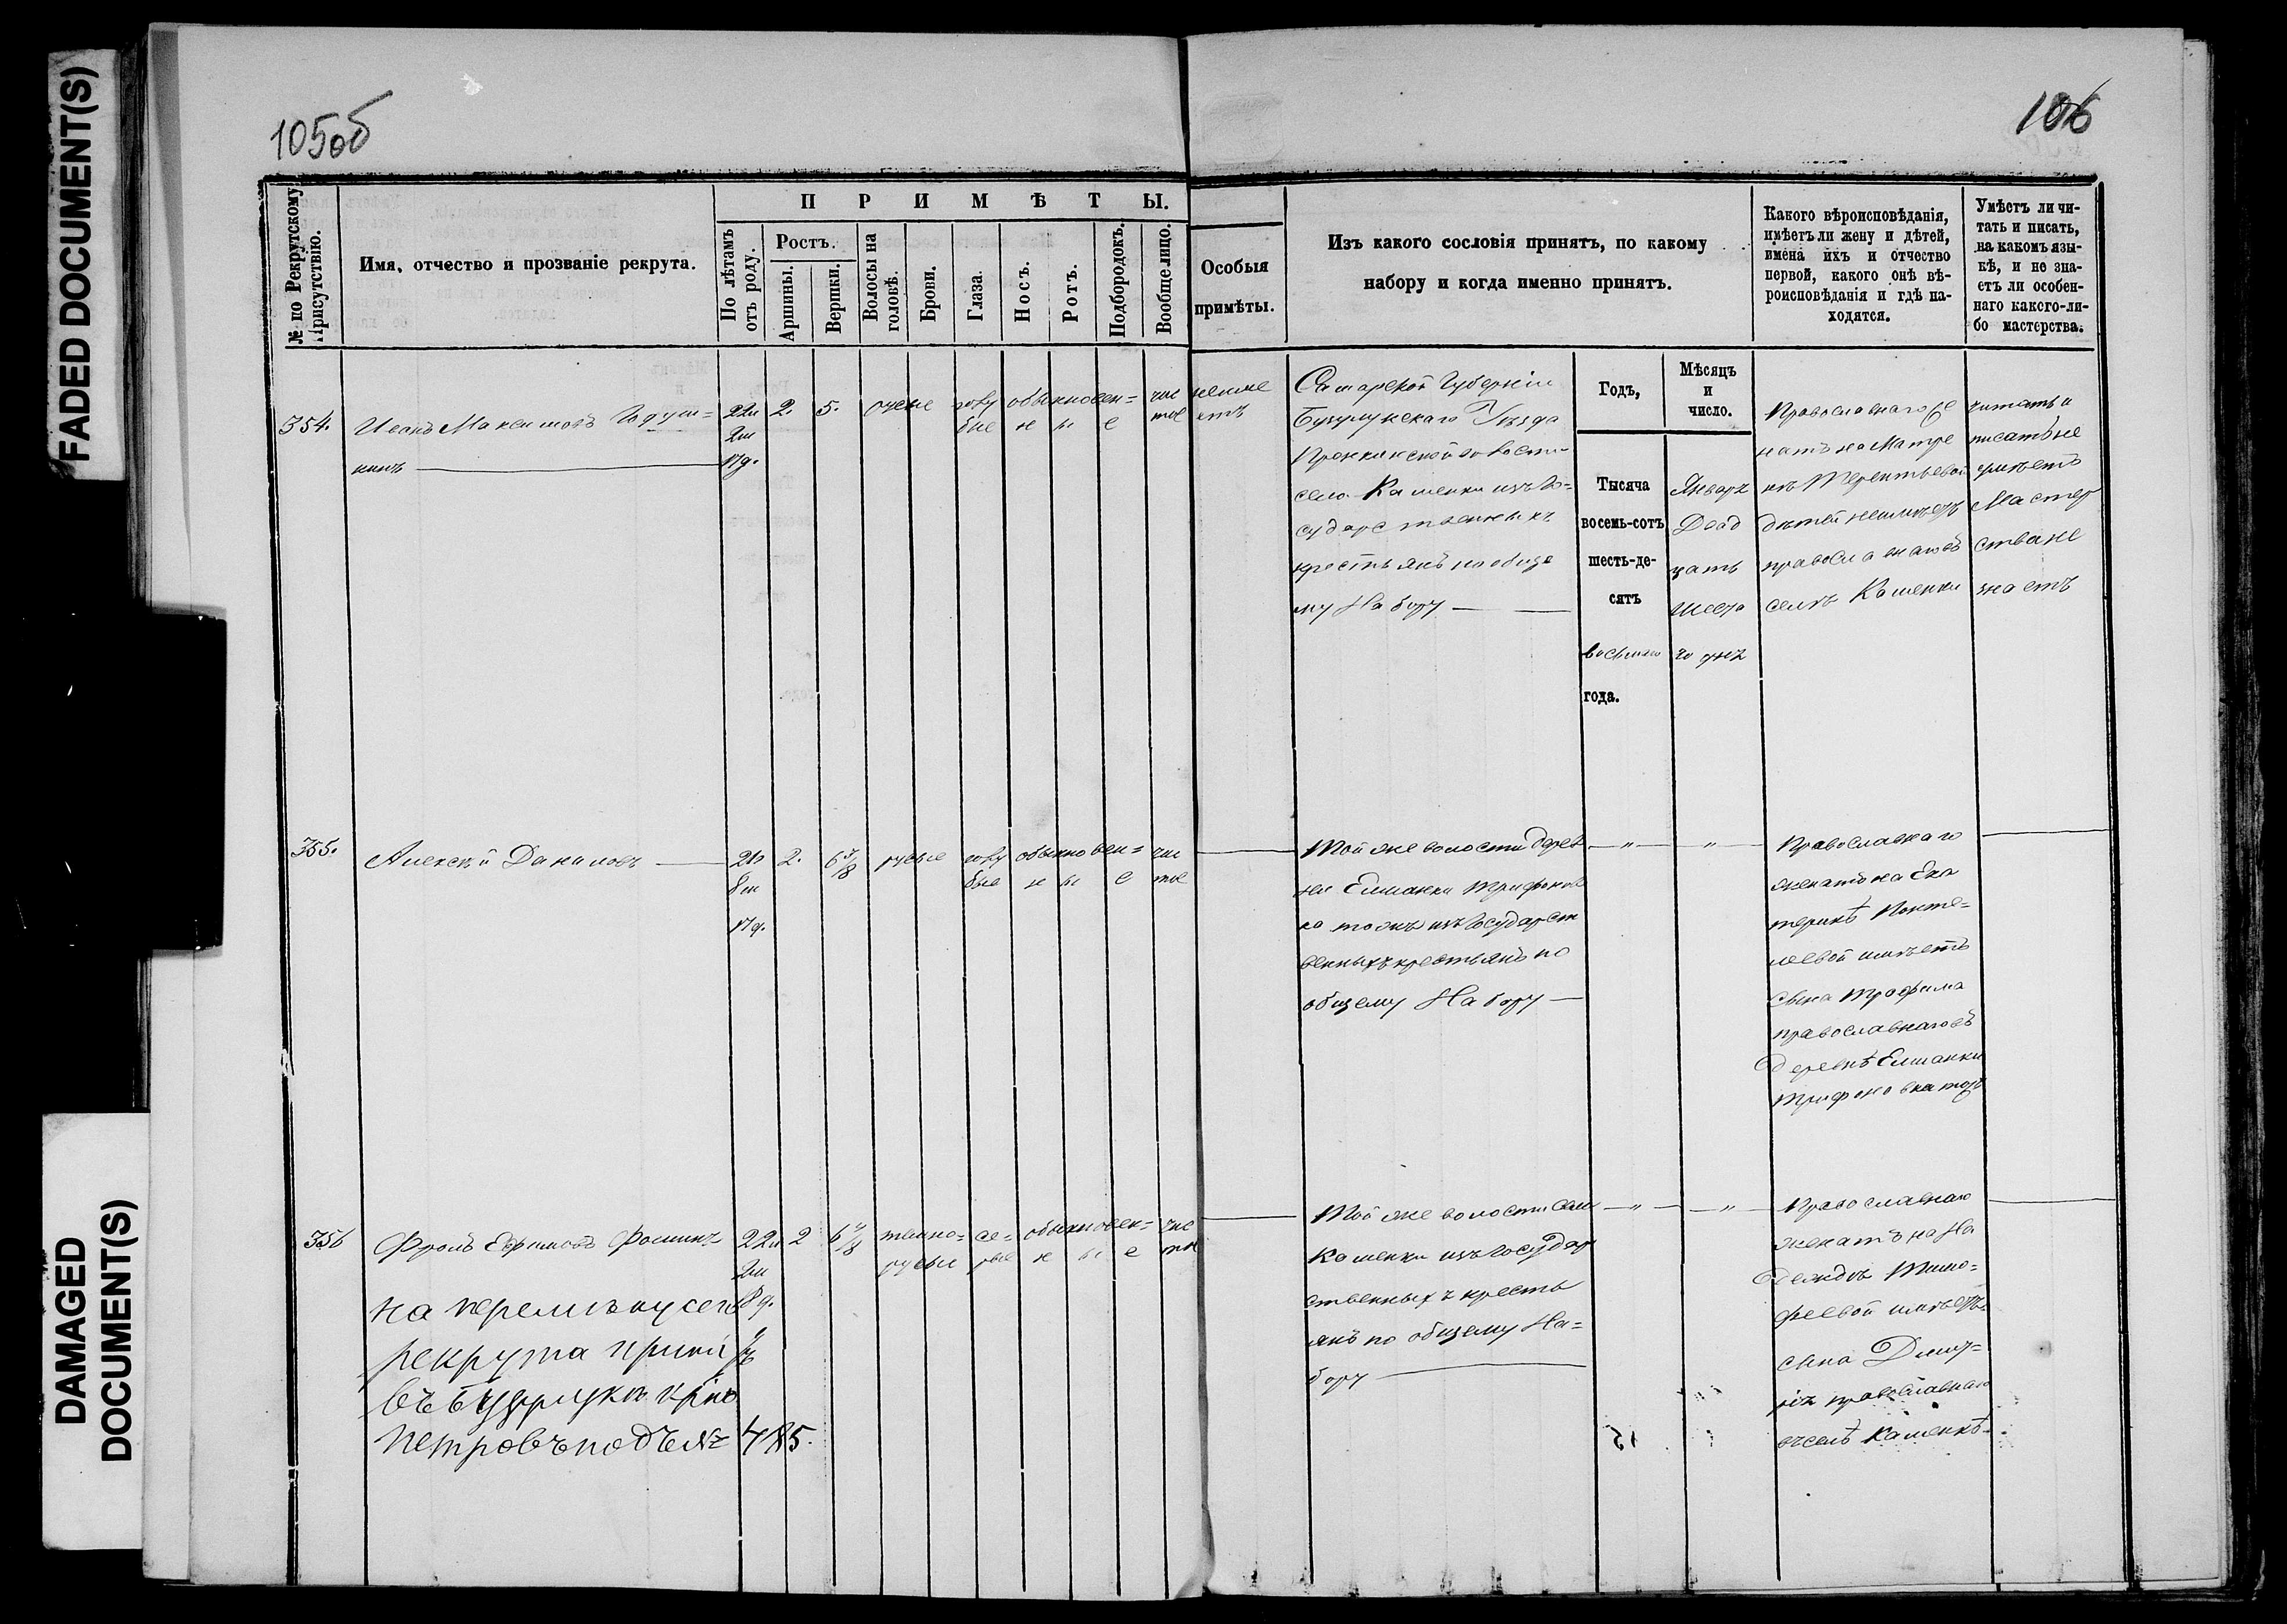 FADED DOCUMENT(S)
DAMAGED
DOCUMENT(S)
105об
106
№ по Рекрутскому
Присутствію.
Имя, отчество и прозваніе рекрута.
ПРИМѢТЫ.
По лѣтамъ
отъ роду.
Ростъ.
Аршины.
Вершки.
Волосы на
головѣ.
Брови.
Глаза.
Носъ.
Ротъ.
Подбородокъ.
Вообще лицо.
Особыя
примѣты.
Изъ какого сословія принятъ, по какому
набору и когда именно принятъ.
Какого вѣроисповѣданія,
имѣетъ ли жену и дѣтей,
имена ихъ и отчество
первой, какого онѣ вѣ-
роисповѣданія и гдѣ на-
ходятся.
Умѣетъ ли чи-
тать и писать,
на какомъ язы-
кѣ, и не зна-
етъ ли особен-
наго какого-ли-
бо мастерства.
354.
Иванъ Максимовъ
22л
2м
17д.
2.
5.
русые
голу
бые
обыкновен=
ные
чис
тое
неиме
етъ
Самарской Губерніи
Бугурусланскаго Уѣзда
волости
село Каменки изъ Го=
сударственныхъ
крестьянъ по обще
му Набору
Годъ,
Мѣсяцъ
и
число.
Тысяча
восемь-сотъ
шесть-де-
сятъ
восьмаго
года.
Январь
Двад
цать
шеста
го дня
Православнаго же
натъ на Матре
нѣ Терентьевой
дѣтей неимѣетъ
православнаго въ
селѣ Каменки
читать и
писать не
умѣетъ
Мастер
ства не
знаетъ
355.
Алексѣй Даниловъ
21л
8м
17д.
2.
6 3/8
русые
голу
бые
обыкновен=
ные
чис
тое
Той же волости дерев
ни Елшанки Трифоновк
а тожъ изъ Государст
венныхъ крестьянъ по
общему Набору
"
"
Православнаго
женатъ на Ека
теринѣ Панте=
леевой имѣетъ
сына Трофима
православнаго въ
Деревнѣ Елшанки
Трифоновка тожъ
356
Фролъ Ефимовъ Фоминъ
22л
2м
18д.
2
6 4/8
темно=
русые
се=
рые
обыкновен=
ные
чис
тое
на перемѣну сего
рекрута
Петровъ подъ № 485.
Той же волости села
Каменки изъ Государ
ственныхъ кресть
янъ по общему На=
бору
"
"
Православнаго
женатъ на На
деждѣ Тимо=
феевой имѣетъ
сына Дмит=
рія православнаго
въ селѣ Каменкѣ